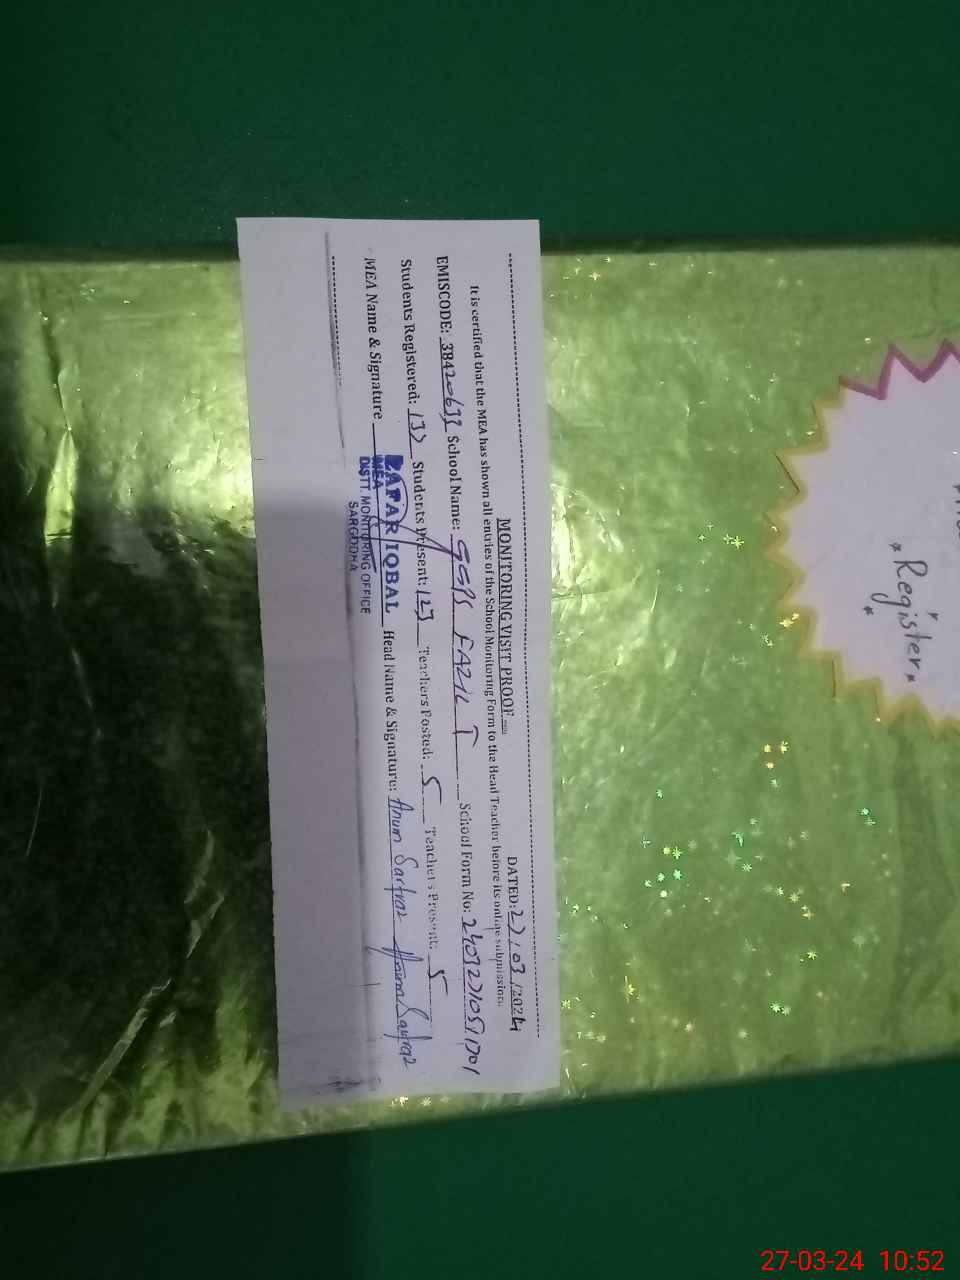 MONITORING VISIT PROOF
DATED: 27/03/2024
It is certified that the MEA has shown all entries of the School Monitoring Form to the Head Teacher before its online submission.
EMISCODE: School Name: GGPS FAZIL School Form No:
Students Registered: 132 Students Present: 123 Teachers Posted: 5 Teachers Present: 5
MEA Name & Signature ZAFAR IQBAL Head Name & Signature: Anum Sarfraz Anum Sarfraz
MEA
DISTT. MONITORING OFFICE
SARGODHA
*Register*
27-03-24 10:52